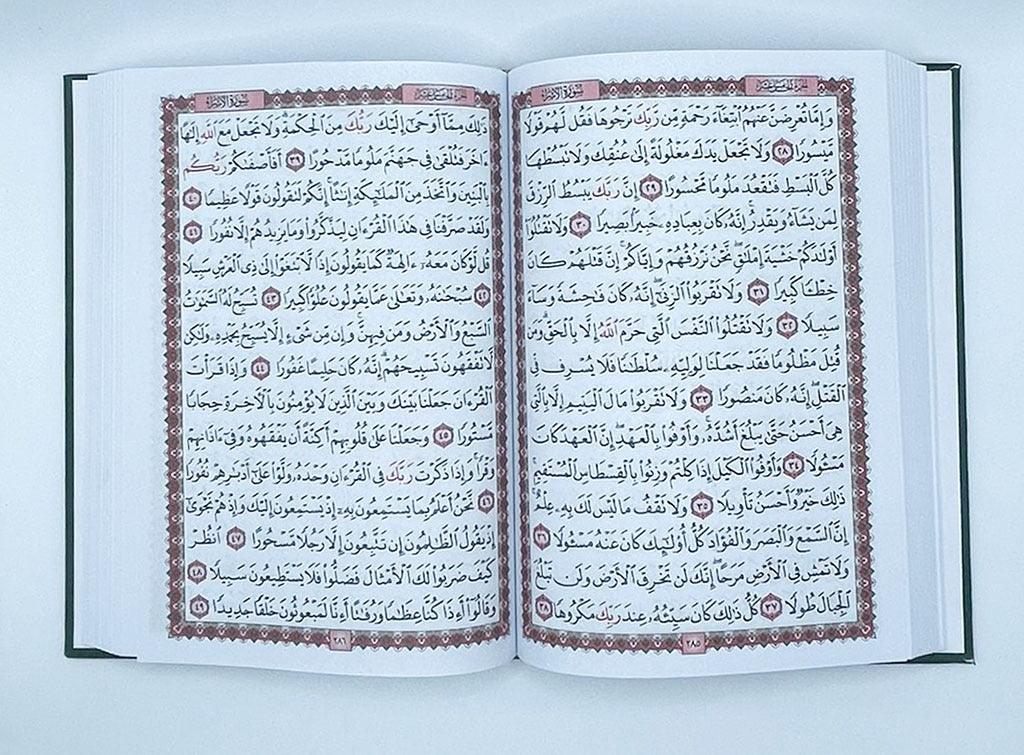 سورة الإسراء
الجزء الخامس عشر
وَإِمَّا تُعْرِضَنَّ عَنْهُمُ ٱبْتِغَآءَ رَحْمَةٍ مِّن رَّبِّكَ تَرْجُوهَا فَقُل لَّهُمْ قَوْلًا
مَّيْسُورًا ٢٨ وَلَا تَجْعَلْ يَدَكَ مَغْلُولَةً إِلَىٰ عُنُقِكَ وَلَا تَبْسُطْهَا
كُلَّ ٱلْبَسْطِ فَتَقْعُدَ مَلُومًا مَّحْسُورًا ٢٩ إِنَّ رَبَّكَ يَبْسُطُ ٱلرِّزْقَ
لِمَن يَشَآءُ وَيَقْدِرُ إِنَّهُۥ كَانَ بِعِبَادِهِۦ خَبِيرًۢا بَصِيرًا ٣٠ وَلَا تَقْتُلُوٓا۟
أَوْلَٰدَكُمْ خَشْيَةَ إِمْلَٰقٍ نَّحْنُ نَرْزُقُهُمْ وَإِيَّاكُمْ إِنَّ قَتْلَهُمْ كَانَ
خِطْـًٔا كَبِيرًا ٣١ وَلَا تَقْرَبُوا۟ ٱلزِّنَىٰٓ إِنَّهُۥ كَانَ فَٰحِشَةً وَسَآءَ
سَبِيلًا ٣٢ وَلَا تَقْتُلُوا۟ ٱلنَّفْسَ ٱلَّتِى حَرَّمَ ٱللَّهُ إِلَّا بِٱلْحَقِّ وَمَن
قُتِلَ مَظْلُومًا فَقَدْ جَعَلْنَا لِوَلِيِّهِۦ سُلْطَٰنًا فَلَا يُسْرِف فِّى
ٱلْقَتْلِ إِنَّهُۥ كَانَ مَنصُورًا ٣٣ وَلَا تَقْرَبُوا۟ مَالَ ٱلْيَتِيمِ إِلَّا بِٱلَّتِى
هِىَ أَحْسَنُ حَتَّىٰ يَبْلُغَ أَشُدَّهُۥ وَأَوْفُوا۟ بِٱلْعَهْدِ إِنَّ ٱلْعَهْدَ كَانَ
مَسْـُٔولًا ٣٤ وَأَوْفُوا۟ ٱلْكَيْلَ إِذَا كِلْتُمْ وَزِنُوا۟ بِٱلْقِسْطَاسِ ٱلْمُسْتَقِيمِ
ذَٰلِكَ خَيْرٌ وَأَحْسَنُ تَأْوِيلًا ٣٥ وَلَا تَقْفُ مَا لَيْسَ لَكَ بِهِۦ عِلْمٌ
إِنَّ ٱلسَّمْعَ وَٱلْبَصَرَ وَٱلْفُؤَادَ كُلُّ أُو۟لَٰٓئِكَ كَانَ عَنْهُ مَسْـُٔولًا ٣٦
وَلَا تَمْشِ فِى ٱلْأَرْضِ مَرَحًا إِنَّكَ لَن تَخْرِقَ ٱلْأَرْضَ وَلَن تَبْلُغَ
ٱلْجِبَالَ طُولًا ٣٧ كُلُّ ذَٰلِكَ كَانَ سَيِّئُهُۥ عِندَ رَبِّكَ مَكْرُوهًا ٣٨
٢٨٥
سورة الإسراء
الجزء الخامس عشر
ذَٰلِكَ مِمَّآ أَوْحَىٰٓ إِلَيْكَ رَبُّكَ مِنَ ٱلْحِكْمَةِ وَلَا تَجْعَلْ مَعَ ٱللَّهِ إِلَٰهًا
ءَاخَرَ فَتُلْقَىٰ فِى جَهَنَّمَ مَلُومًا مَّدْحُورًا ٣٩ أَفَأَصْفَىٰكُمْ رَبُّكُم
بِٱلْبَنِينَ وَٱتَّخَذَ مِنَ ٱلْمَلَٰٓئِكَةِ إِنَٰثًا إِنَّكُمْ لَتَقُولُونَ قَوْلًا عَظِيمًا ٤٠
وَلَقَدْ صَرَّفْنَا فِى هَٰذَا ٱلْقُرْءَانِ لِيَذَّكَّرُوا۟ وَمَا يَزِيدُهُمْ إِلَّا نُفُورًا ٤١
قُل لَّوْ كَانَ مَعَهُۥٓ ءَالِهَةٌ كَمَا يَقُولُونَ إِذًا لَّٱبْتَغَوْا۟ إِلَىٰ ذِى ٱلْعَرْشِ سَبِيلًا
٤٢ سُبْحَٰنَهُۥ وَتَعَٰلَىٰ عَمَّا يَقُولُونَ عُلُوًّا كَبِيرًا ٤٣ تُسَبِّحُ لَهُ ٱلسَّمَٰوَٰتُ
ٱلسَّبْعُ وَٱلْأَرْضُ وَمَن فِيهِنَّ وَإِن مِّن شَىْءٍ إِلَّا يُسَبِّحُ بِحَمْدِهِۦ وَلَٰكِن
لَّا تَفْقَهُونَ تَسْبِيحَهُمْ إِنَّهُۥ كَانَ حَلِيمًا غَفُورًا ٤٤ وَإِذَا قَرَأْتَ
ٱلْقُرْءَانَ جَعَلْنَا بَيْنَكَ وَبَيْنَ ٱلَّذِينَ لَا يُؤْمِنُونَ بِٱلْءَاخِرَةِ حِجَابًا
مَّسْتُورًا ٤٥ وَجَعَلْنَا عَلَىٰ قُلُوبِهِمْ أَكِنَّةً أَن يَفْقَهُوهُ وَفِىٓ ءَاذَانِهِمْ
وَقْرًا وَإِذَا ذَكَرْتَ رَبَّكَ فِى ٱلْقُرْءَانِ وَحْدَهُۥ وَلَّوْا۟ عَلَىٰٓ أَدْبَٰرِهِمْ نُفُورًا
٤٦ نَّحْنُ أَعْلَمُ بِمَا يَسْتَمِعُونَ بِهِۦٓ إِذْ يَسْتَمِعُونَ إِلَيْكَ وَإِذْ هُمْ نَجْوَىٰٓ
إِذْ يَقُولُ ٱلظَّٰلِمُونَ إِن تَتَّبِعُونَ إِلَّا رَجُلًا مَّسْحُورًا ٤٧ ٱنظُرْ
كَيْفَ ضَرَبُوا۟ لَكَ ٱلْأَمْثَالَ فَضَلُّوا۟ فَلَا يَسْتَطِيعُونَ سَبِيلًا ٤٨
وَقَالُوٓا۟ أَءِذَا كُنَّا عِظَٰمًا وَرُفَٰتًا أَءِنَّا لَمَبْعُوثُونَ خَلْقًا جَدِيدًا ٤٩
٢٨٦